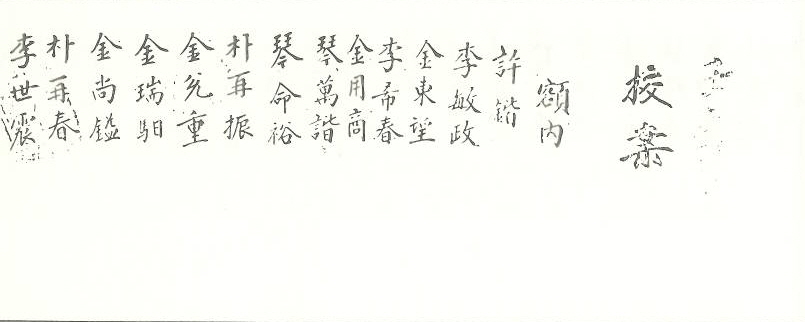 校案
額內
許鍇
李敏政
金東望
李希春
金用商
琴萬諧
琴命裕
朴再振
金兌重
金瑞馹
金尚鎰
朴再春
李世震